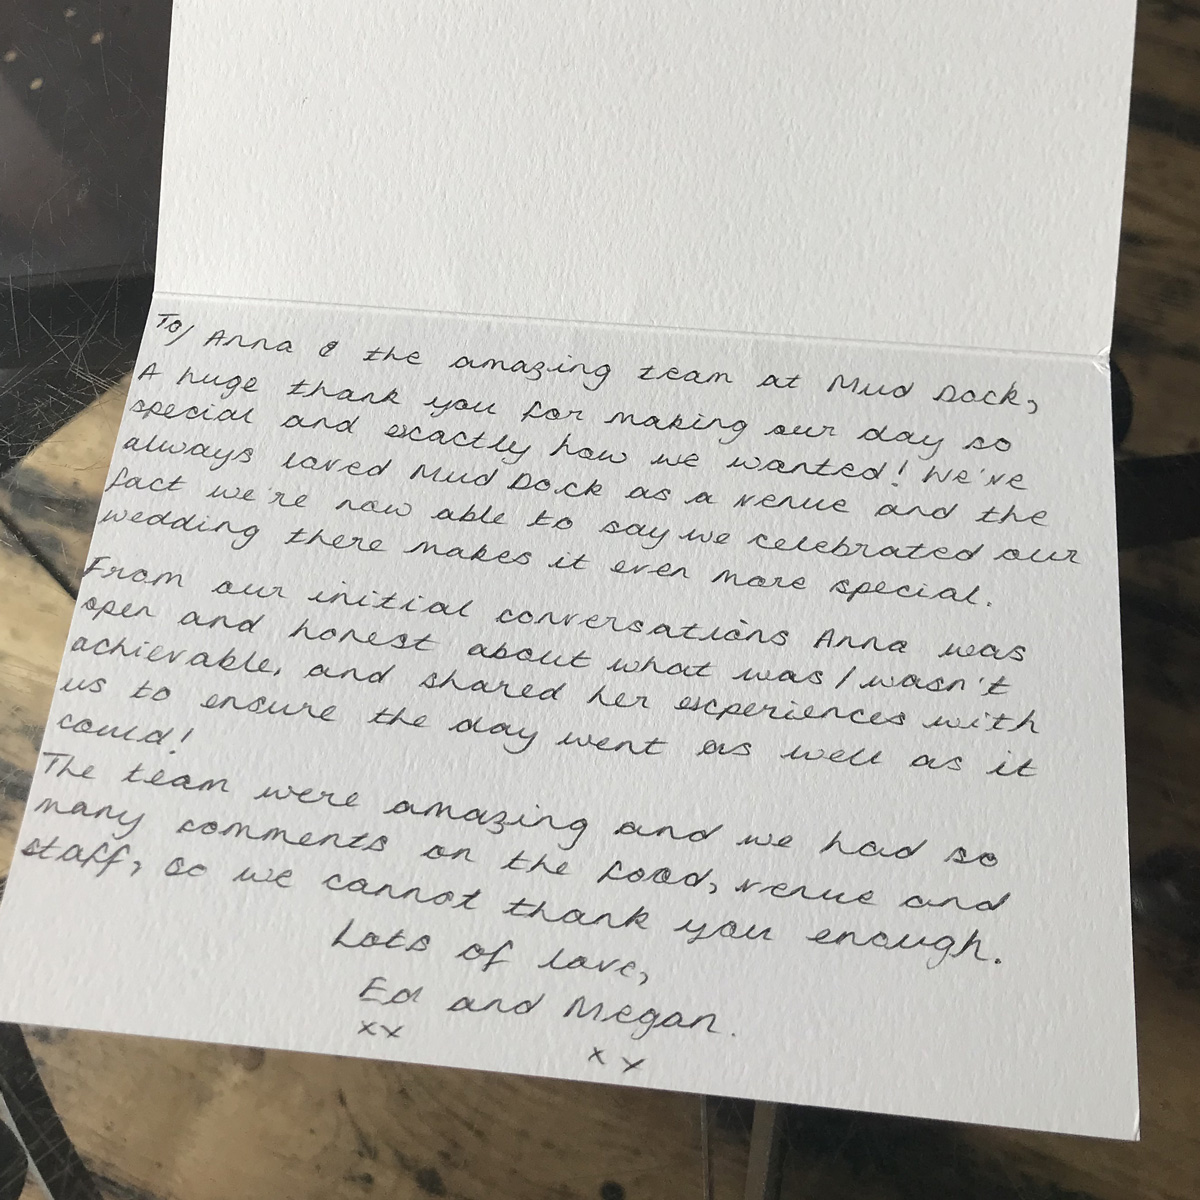 To/ Anna & the amazing team at Mud Dock,
A huge thank you for making our day so
special and exactly how we wanted! We've
always loved Mud Dock as a venue and the
fact we're now able to say we celebrated our
wedding there makes it even more special.
From our initial conversations Anna was
open and honest about what was/wasn't
achievable, and shared her experiences with
us to ensure the day went as well as it
could!
The team were amazing and we had so
many comments on the food, venue and
staff, so we cannot thank you enough.
Lots of love,
Ed and Megan.
xx
xx